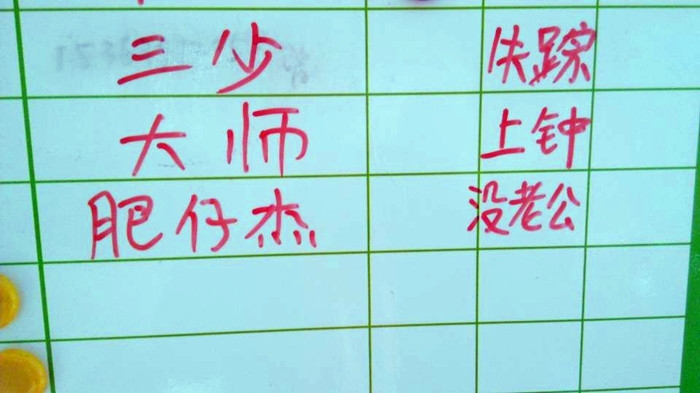 三少 失踪
大师 上钟
肥仔杰 没老公